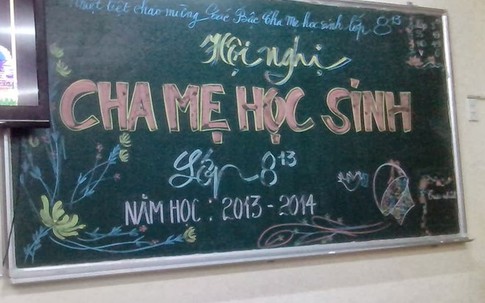 Nhiệt liệt chào mừng Các Bậc Cha mẹ học sinh lớp 8¹³
Hội nghị
CHA MẸ HỌC SINH
Lớp 8¹³
NĂM HỌC : 2013 - 2014